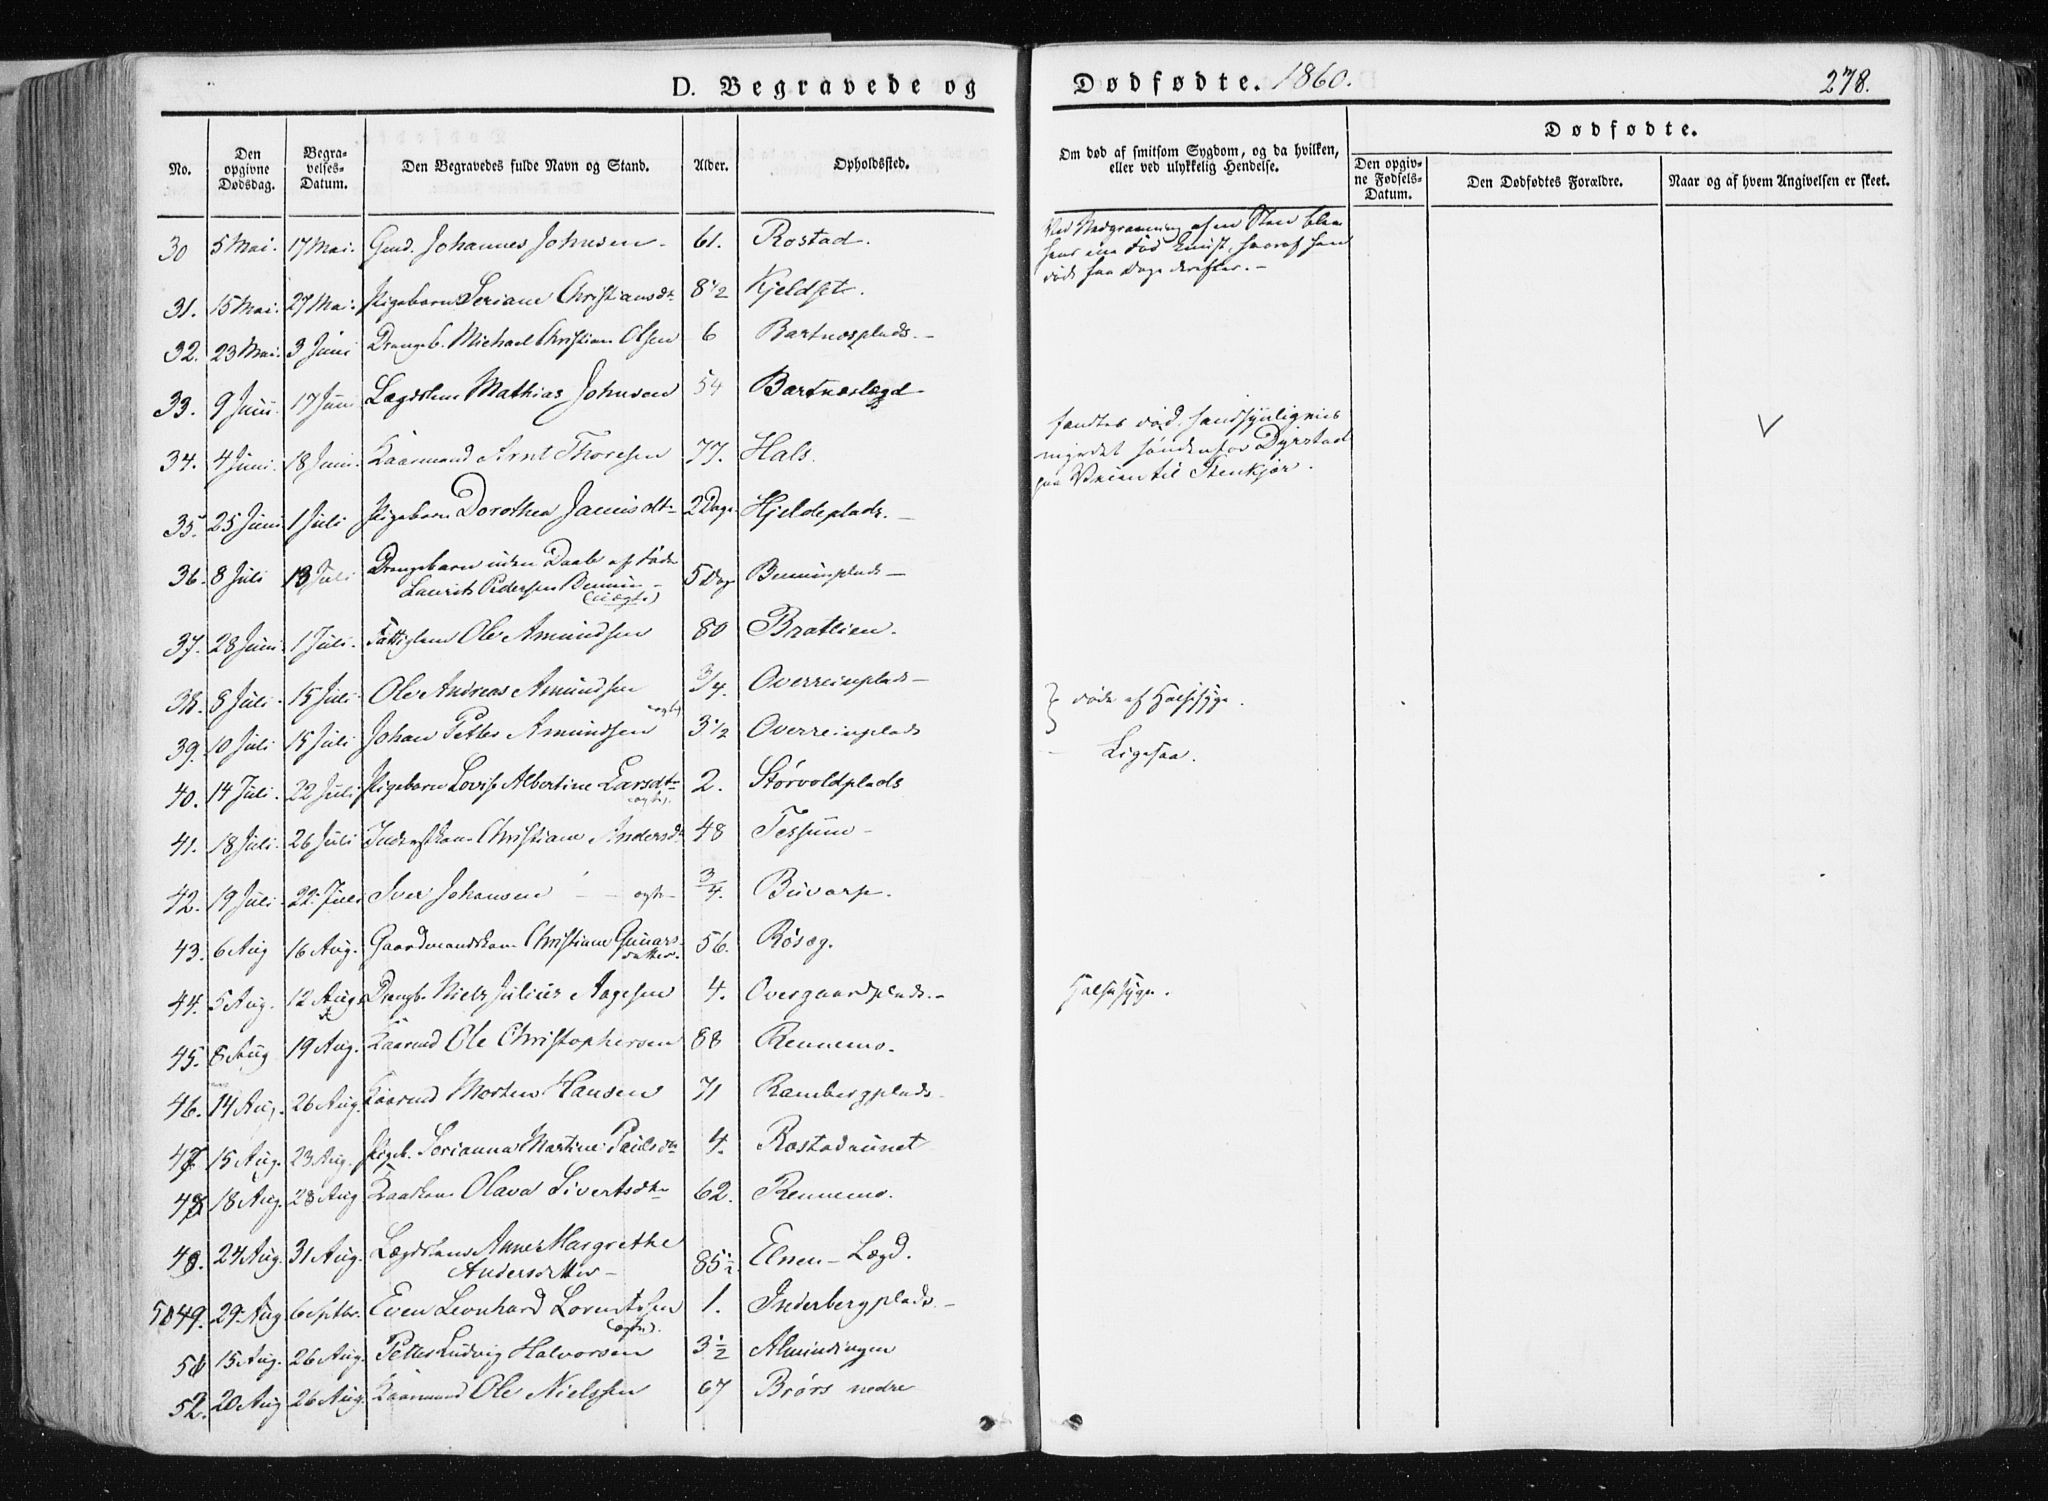 D. Begravede og
Dødfødte. 1860.
278.
No.
Den opgivne Dødsdag.
Begravelses-Datum.
Den Begravedes fulde Navn og Stand.
Alder.
Opholdssted.
Om død af smitsom Sygdom, og da hvilken, eller ved ulykkelig Hendelse.
Dødfødte.
Den opgivne Fødsels-Datum.
Den Dødfødtes Forældre.
Naar og af hvem Angivelsen er skeet.
30 5 Mai. 17 Mai. Gmd. Johannes Johnsen 61. Rostad.
Ved Nedgravning af en Sten blev
hans ene Fod knust, hvoraf han
døde faa Dage derefter.
31. 15 Mai. 27 Mai. Pigebarn Seriane Christiansdtr 8 1/2 Kjeldset.
32. 23 Mai. 3 Juni Drengeb. Michael Christian Olsen 6 Bartnesplads.
33. 9 Juni 17 Juni Lægdslem Mathias Johnsen 54 Bartneslægd
34. 4 Juni. 18 Juni. Kaarmand Arnt Thoresen 77. Hals.
fandtes død, sandsynligvis
myrdet søndenfor Dyrstad
paa Veien til Stenkjær.
35. 25 Juni 1 Juli Pigebarn Dorothea Janusdtr 2 Dage Hjeldeplads.
36. 8 Juli 13 Juli Drengebarn uden Daab af Fader
Laurits Pedersen
(uægte) 5 Dage
37. 28 Juni 1 Juli. Fattiglem Ole Amundsen 80 Bratlien.
38. 8 Juli. 15 Juli. Ole Andreas Amundsen 3/4. Overreinplads
} døde af Halssyge.
39. 10 Juli 15 Juli Johan Petter Amundsen ægte 3 1/2 Overreinplads
Ligesaa.
40. 14 Juli. 22 Juli Pigebarn Lovise Albertine Larsdtr
ægte. 2. Størvoldplads
41. 18 Juli. 26 Juli Inderstkone Christiane Andersdtr 48 Tessum
42. 19 Juli. 22 Juli Iver Johansen ægte 3/4. Buvarp.
43. 6 Aug 16 Aug. Gaardmandskone Christiane Gunars-
datter. 56. Røsæg.
44. 5 Aug. 12 Aug. Drengb. Niels Julius Aagesen 4. Overgaardplads.
Halssyge.
45. 8 Aug 19 Aug. Kaarmd Ole Christophersen 88 Rennemo.
46. 14 Aug. 26 Aug. Kaarmd Morten Hansen 71 Rambergplads
47. 15 Aug. 23 Aug. Pigeb. Serianna Martine Paulsdtr 4. Rostadaunet
48. 18 Aug. 28 Aug Kaakone Olava Sivertsdtr 62. Rennemo.
49. 24 Aug. 31 Aug. Lægdslem Anne Margrethe
Andersdatter 85 1/2 Elnen Lægd.
50 49. 29 Aug 6 Septbr. Even Leonhard Lorentsen
(ægte). 1. Inderbergplads
51 15 Aug. 26 Aug. Petter Ludvig Halvorsen 3 1/2 Almindingen
52. 20 Aug 26 Aug. Kaarmand Ole Nielssen 67 Brørs nedre